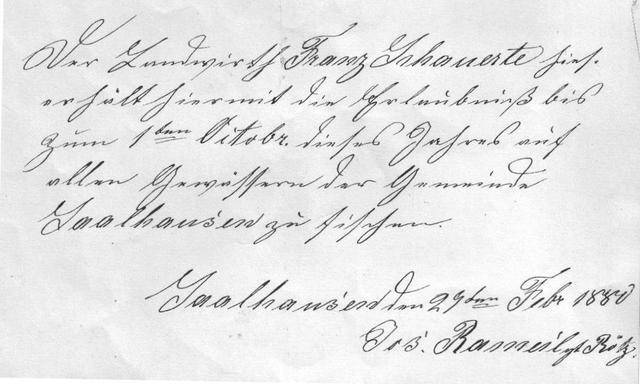 Der Landwirth Franz Schauerte hies.
erhält hiermit die Erlaubniß bis
zum 1ten Octobr. dieses Jahres auf
allen Gewässern der Gemeinde
Saalhausen zu fischen.
Saalhausen den 29ten Febr 1880
Jos. Rameil gt